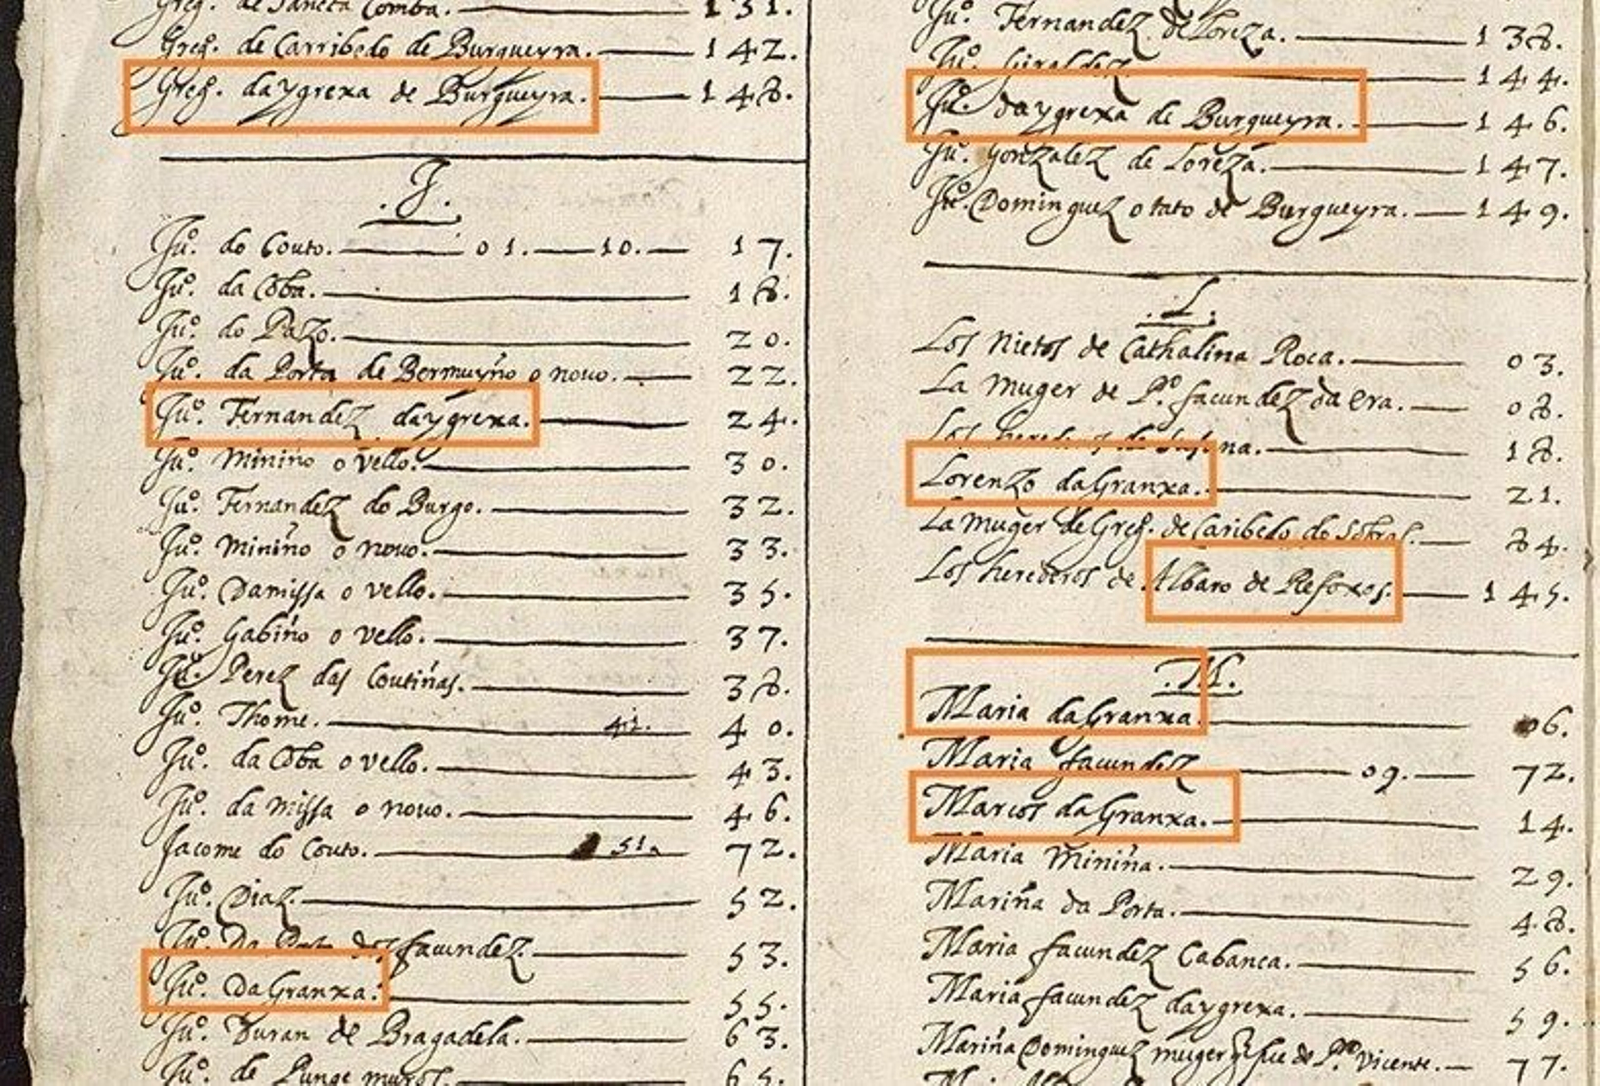 Greg. de Sancta Comba. 131.
Greg. de Carribedo de Burgueyra. 142.
Greg. daygrexa de Burgueyra. 148.
.J.
Juº. do Couto. 01. 10. 17.
Juº. da Coba. 18.
Juº. do Pazo. 20.
Juº. da Porta de Bermuyño o novo. 22.
Juº. Fernandez daygrexa. 24.
Juº. Miniño o vello. 30.
Juº. Fernandez do Burgo. 32.
Juº. Miniño o novo. 33.
Juº. Damissa o vello. 35.
Juº. Gabiño o vello. 37.
Juº. Perez das Coutiñas. 38.
Juº. Thome. 41. 40.
Juº. da Coba o vello. 43.
Juº. da missa o novo. 46.
Jacome do Couto. 51. 72.
Juº. Diaz. 52.
Juº. Da Porta dos facundez. 53.
Juº. DaGranxa. 55.
Juº. Duran de Bragadela. 63.
Juº. de 65.
Juº. Fernandez de Loreza. 138.
Juº. Giraldez. 144.
Juº. daygrexa de Burgueyra. 146.
Juº. Gonzalez de Loreza. 147.
Juº. Dominguez o tato de Burgueyra. 149.
.L.
Los Nietos de Cathalina Roca. 03.
La Muger de Pº. facundez da era. 08.
Los herederos de 18.
Lorenzo daGranxa. 21.
La muger de Greg. de Caribedo do Sobral. 84.
Los herederos de Albaro de Refoxos. 145.
.M.
Maria daGranxa. 06.
Maria facundez 09. 72.
Marcos daGranxa. 14.
Maria Miniña. 29.
Mariña da Porta. 48.
Maria facundez Cabanca. 56.
Maria facundez daygrexa. 59.
Mariña Dominguez muger de Vicente. 77.